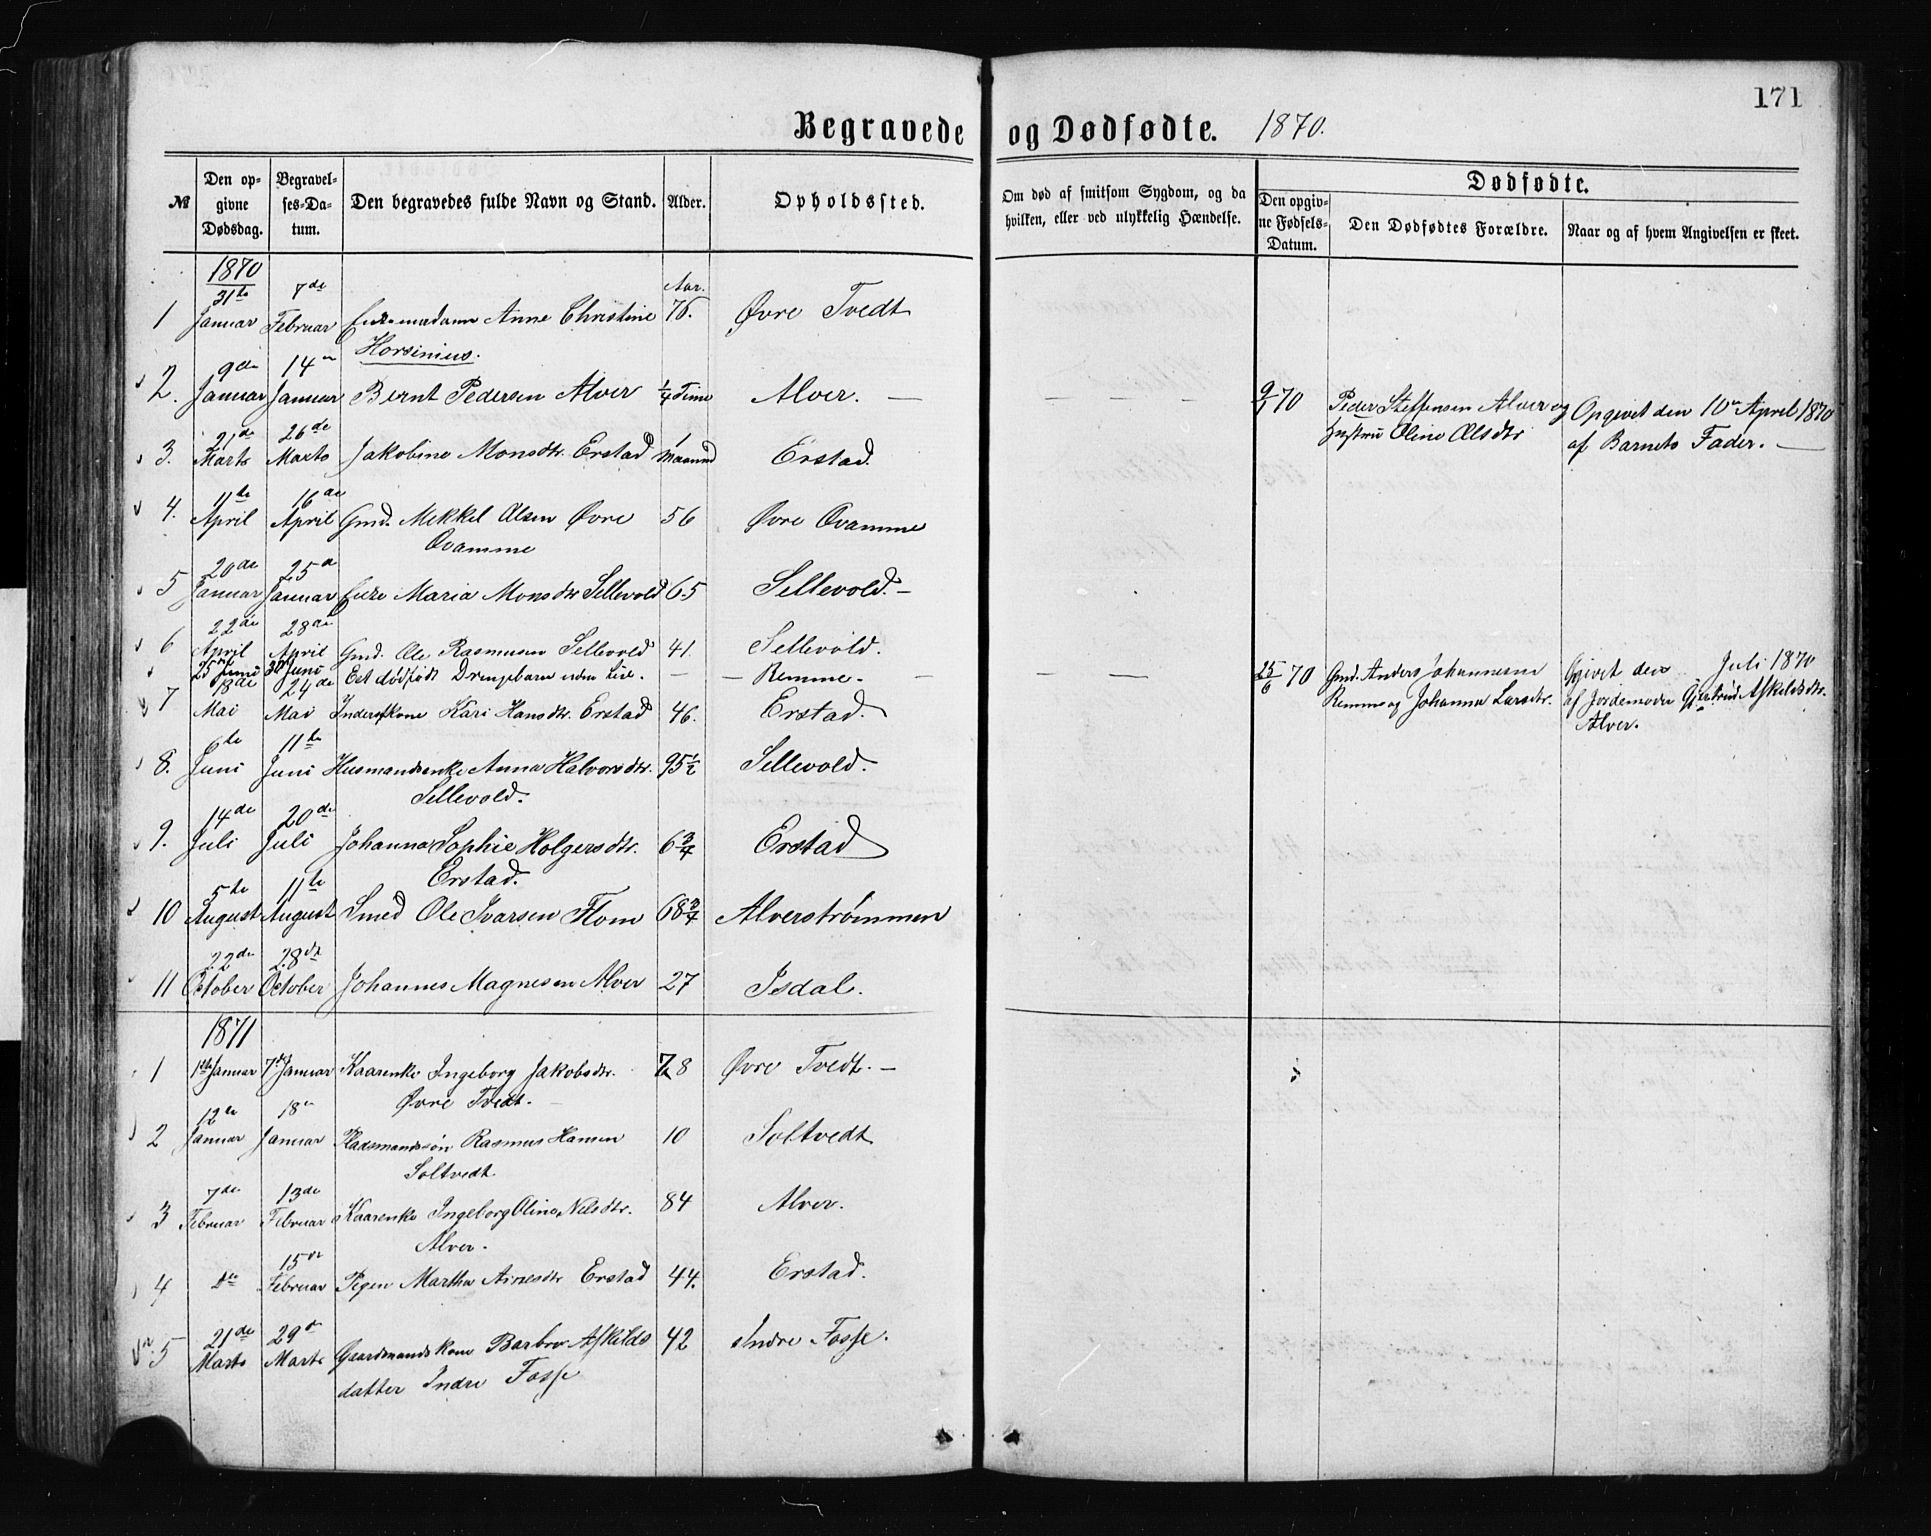 171
Begravede og Dødfødte. 1870.
№ Den opgivne Dødsdag. Begravelses-Datum. Den begravedes fulde Navn og Stand. Alder. Opholdssted. Om død af smitsom Sygdom, og da hvilken, eller ved ulykkelig Hændelse. Dødfødte. Den opgivne Fødsels-Datum. Den Dødfødtes Forældre. Naar og af hvem Angivelsen er skeet.
1870
31te 7de Aar.
1 Januar Februar Enkemadam Anne Christine 76. Øvre Tvedt
Horsinius.
9de 14de
2. Januar Januar Bernt Pedersen Alver ¼ Time Alver. — — — 9/1 70 Peder Steffensen Alver og Opgivet den 10de April 1870
Hustru Oline Olsdtr af Barnets Fader. —
21de 26de 1
3. Marts Marts Jakobine Monsdtr. Erstad Maaned Erstad.
11te 16de
4. April April Gmd. Mikkel Olsen Øvre 56 Øvre Qvamme
Qvamme
20de 25de
5 Januar Januar Enke Maria Monsdtr Sellevold 65 Sellevold. —
22de 28de
6 April April Gmd. Ole Rasmusen Sellevold 41. Sellevold.
25de Juni 30de Juni Et dødfødt Drengebarn uden Liv. — — Remme. — — — 25/6 70 Gmd. Anders Johannesen Opgivet den Juli 1870
Remme og Johanna Larsdtr. af Jordemoder Gjertrud Askildsdtr.
Alver.
18de 24de
7 Mai Mai Inderstkone Kari Hansdtr. Erstad 46. Erstad.
6te 11te
8. Juni Juni Husmandsenke Anna Halvorsdtr. 95½ Sellevold.
Sellevold.
14de 20de
9. Juli Juli Johanna Sophie Holgersdtr. 6¾ Erstad
Erstad.
5te 11te
10 August August Smed Ole Ivarsen Flom 68¾ Alverstrømmen
22de 28de
11 October October Johannes Magnesen Alver 27 Isdal.
1871
1 1ste Januar 7de Januar Kaarenke Ingeborg Jakobsdtr. 78 Øvre Tvedt. —
Øvre Tvedt. —
12te 18de
2 Januar Januar Pladsmandssøn Rasmus Hansen 10 Soltvedt
Soltvedt
7de 13de
3 Februar Februar Kaarenke Ingeborg Oline Nilsdtr. 84 Alver.
Alver.
15de
4 Februar Pigen Martha Arnesdtr Erstad 44. Erstad.
21de 29de
5 Marts Marts Gaardmandskone Barbro Askilds 42 Indre Fosse.
datter Indre Fosse